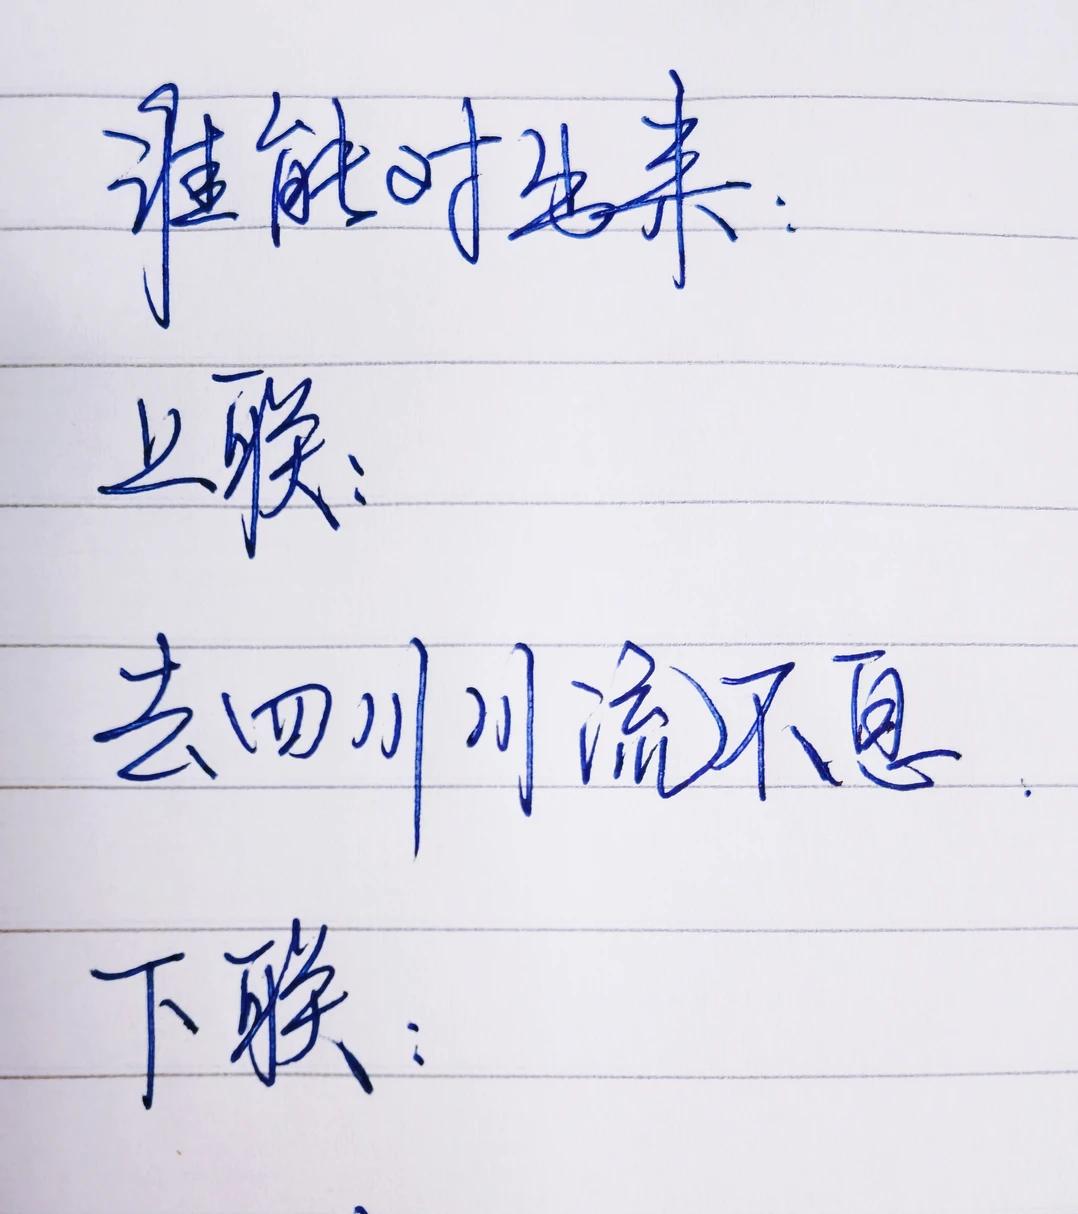 谁能对出来：
上联：
去四川川流不息.
下联：